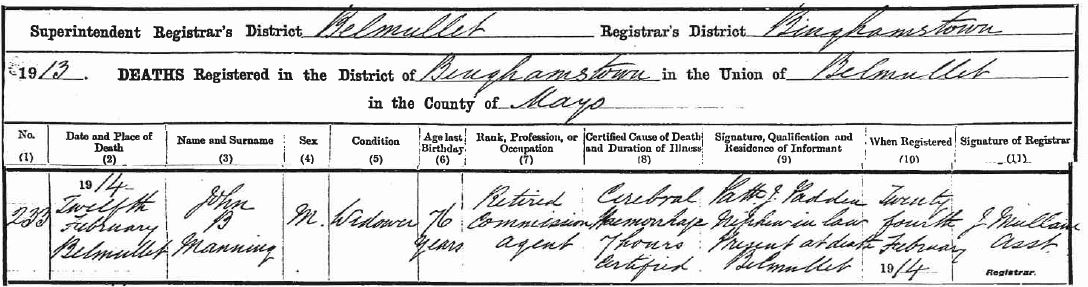 Superintendent Registrar's District Belmullet Registrar's District Binghamstown
1913. DEATHS Registered in the District of Binghamstown in the Union of Belmullet
in the County of Mayo
No. Date and Place of Death Name and Surname Sex Condition Age last Birthday Rank, Profession, or Occupation Certified Cause of Death and Duration of Illness Signature, Qualification and Residence of Informant When Registered Signature of Registrar
(1) (2) (3) (4) (5) (6) (7) (8) (9) (10) (11)
1914 John Retired Cerebral Patk J. Padden Twenty
233 Twelfth B M. Widower 76 Commission Haemorrhage Nephew in law fourth J Mullane
February Manning Years agent 7 hours Present at death February Asst
Belmullet Certified Belmullet 1914 Registrar.